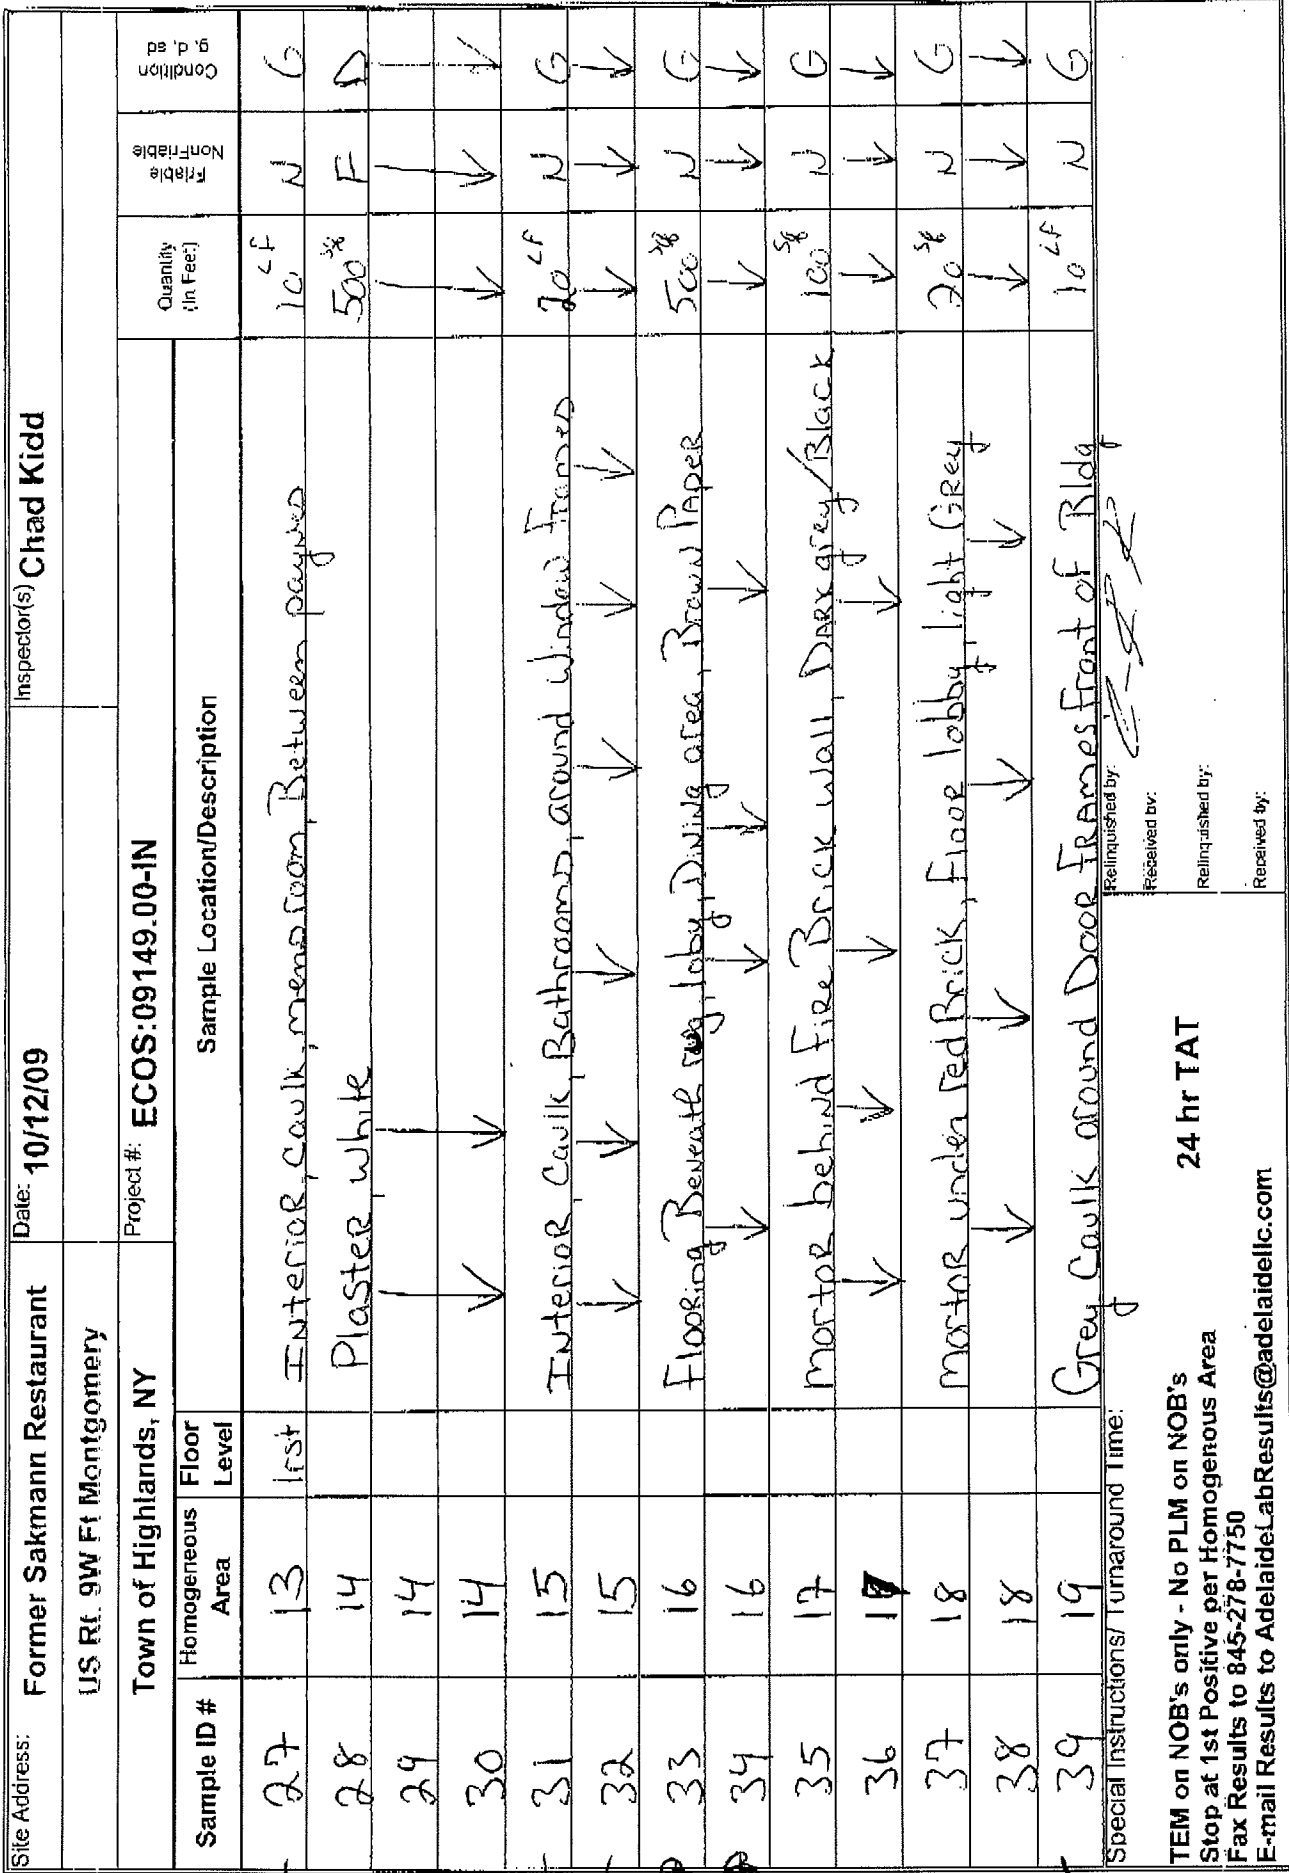 Site Address: Former Sakmann Restaurant Date: 10/12/09 Inspector(s) Chad Kidd
US Rt. 9W Ft Montgomery
Town of Highlands, NY Project #: ECOS:09149.00-IN
Sample ID # Homogeneous Area Floor Level Sample Location/Description Quantity (In Feet) Friable NonFriable Condition g, d, sd
27 13 1rst Interior, Caulk, mens room, Between paynes 10 LF N G
28 14 Plaster, White 500 Sq F D
29 14
30 14
31 15 Interior, Caulk, Bathrooms, around Window Frames 20 LF N G
32 15
33 16 Flooring Beneath rug, loby, Dining area, Brown Paper 500 Sq N G
34 16
35 17 Mortor behind Fire Brick wall, Dark grey/Black 100 Sq N G
36 17
37 18 Mortor under red Brick, Floor lobby, light Grey 20 Sq N G
38 18
39 19 Grey Caulk around Door Frames Front of Bldg 10 LF N G
Special Instructions/ Turnaround Time:
24 hr TAT
TEM on NOB's only - No PLM on NOB's
Stop at 1st Positive per Homogenous Area
Fax Results to 845-278-7750
E-mail Results to AdelaideLabResults@adelaidellc.com
Relinquished by:
Received by:
Relinquished by:
Received by: